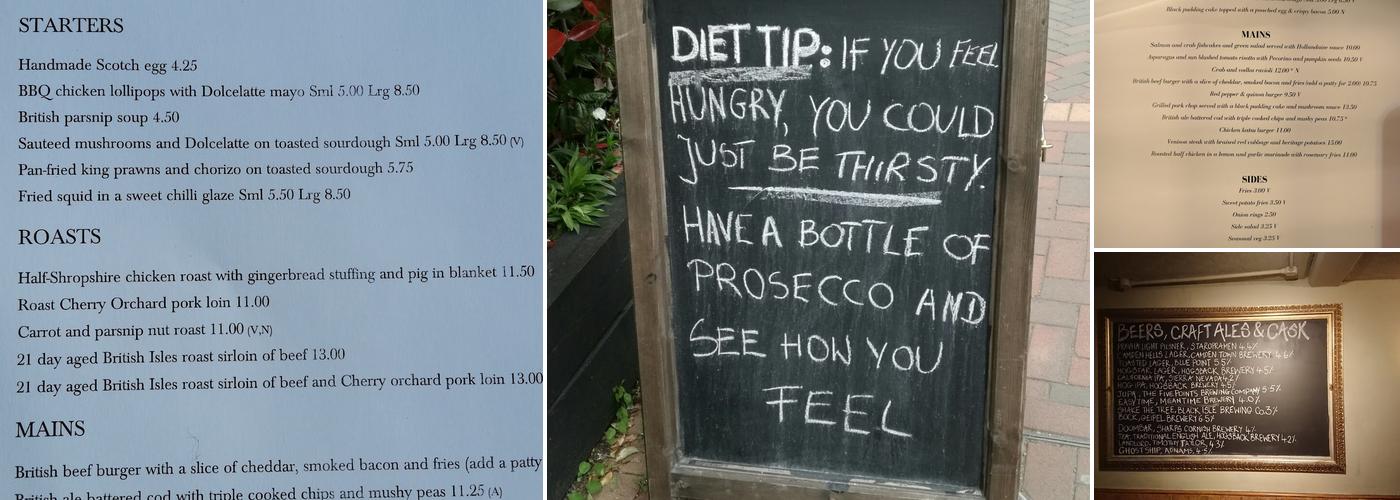 STARTERS
Handmade Scotch egg 4.25
BBQ chicken lollipops with Dolcelatte mayo Sml 5.00 Lrg 8.50
British parsnip soup 4.50
Sauteed mushrooms and Dolcelatte on toasted sourdough Sml 5.00 Lrg 8.50 (V)
Pan-fried king prawns and chorizo on toasted sourdough 5.75
Fried squid in a sweet chilli glaze Sml 5.50 Lrg 8.50
ROASTS
Half-Shropshire chicken roast with gingerbread stuffing and pig in blanket 11.50
Roast Cherry Orchard pork loin 11.00
Carrot and parsnip nut roast 11.00 (V,N)
21 day aged British Isles roast sirloin of beef 13.00
21 day aged British Isles roast sirloin of beef and Cherry orchard pork loin 13.00
MAINS
British beef burger with a slice of cheddar, smoked bacon and fries (add a patty
British ale battered cod with triple cooked chips and mushy peas 11.25 (A)
DIET TIP: IF YOU FEEL
HUNGRY, YOU COULD
JUST BE THIRSTY.
HAVE A BOTTLE OF
PROSECCO AND
SEE HOW YOU
FEEL
Black pudding cake topped with a poached egg & crispy bacon 5.00 N
MAINS
Salmon and crab fishcakes and green salad served with Hollandaise sauce 10.00
Asparagus and sun blushed tomato risotto with Pecorino and pumpkin seeds 10.50 V
Crab and vodka ravioli 12.00* N
British beef burger with a slice of cheddar, smoked bacon and fries (add a patty for 2.00) 10.75
Red pepper & quinoa burger 9.50 V
Grilled pork chop served with a black pudding cake and mushroom sauce 13.50
British ale battered cod with triple cooked chips and mushy peas 10.75*
Chicken katsu burger 11.00
Venison steak with braised red cabbage and heritage potatoes 15.00
Roasted half chicken in a lemon and garlic marinade with rosemary fries 11.00
SIDES
Fries 3.00 V
Sweet potato fries 3.50 V
Onion rings 2.50
Side salad 3.25 V
Seasonal veg 3.25 V
BEERS, CRAFT ALES & CASK
PRAVHA LIGHT PILSNER, STAROPRAMEN 4.4%
CAMDEN HELLS LAGER, CAMDEN TOWN BREWERY 4.6%
TOASTED LAGER, BLUE POINT 5.5%
HOGSTAR LAGER, HOGSBACK BREWERY 4.5%
CALIFORNIA IPA, SIERRA NEVADA 4.2%
HOG IPA, HOGSBACK BREWERY 4.5%
JUPA, THE FIVE POINTS BREWING COMPANY 5.5%
EASY TIME, MEANTIME BREWERY 4.0%
SHAKE THE TREE, BLACK ISLE BREWING Co.
BOCK, GEIPEL BREWERY 6.5%
DOOMBAR, SHARPS CORNISH BREWERY 4%
TEA: TRADITIONAL ENGLISH ALE, HOGSBACK BREWERY 4.2%
LANDLORD, TIMOTHY TAYLOR, 4.3%
GHOST SHIP, ADNAMS, 4.5%